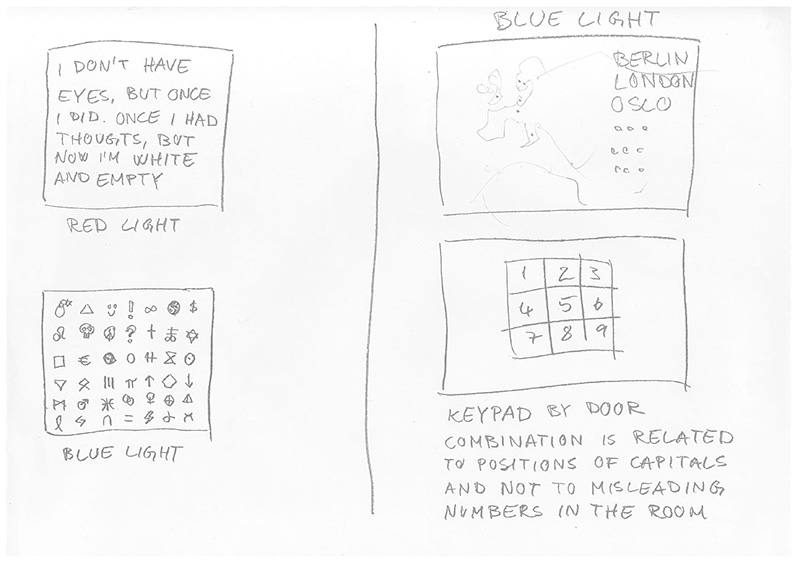 I DON'T HAVE
EYES, BUT ONCE
I DID. ONCE I HAD
THOUGTS, BUT
NOW I'M WHITE
AND EMPTY
RED LIGHT
BLUE LIGHT
BLUE LIGHT
BERLIN
LONDON
OSLO
1 2 3
4 5 6
7 8 9
KEYPAD BY DOOR
COMBINATION IS RELATED
TO POSITIONS OF CAPITALS
AND NOT TO MISLEADING
NUMBERS IN THE ROOM